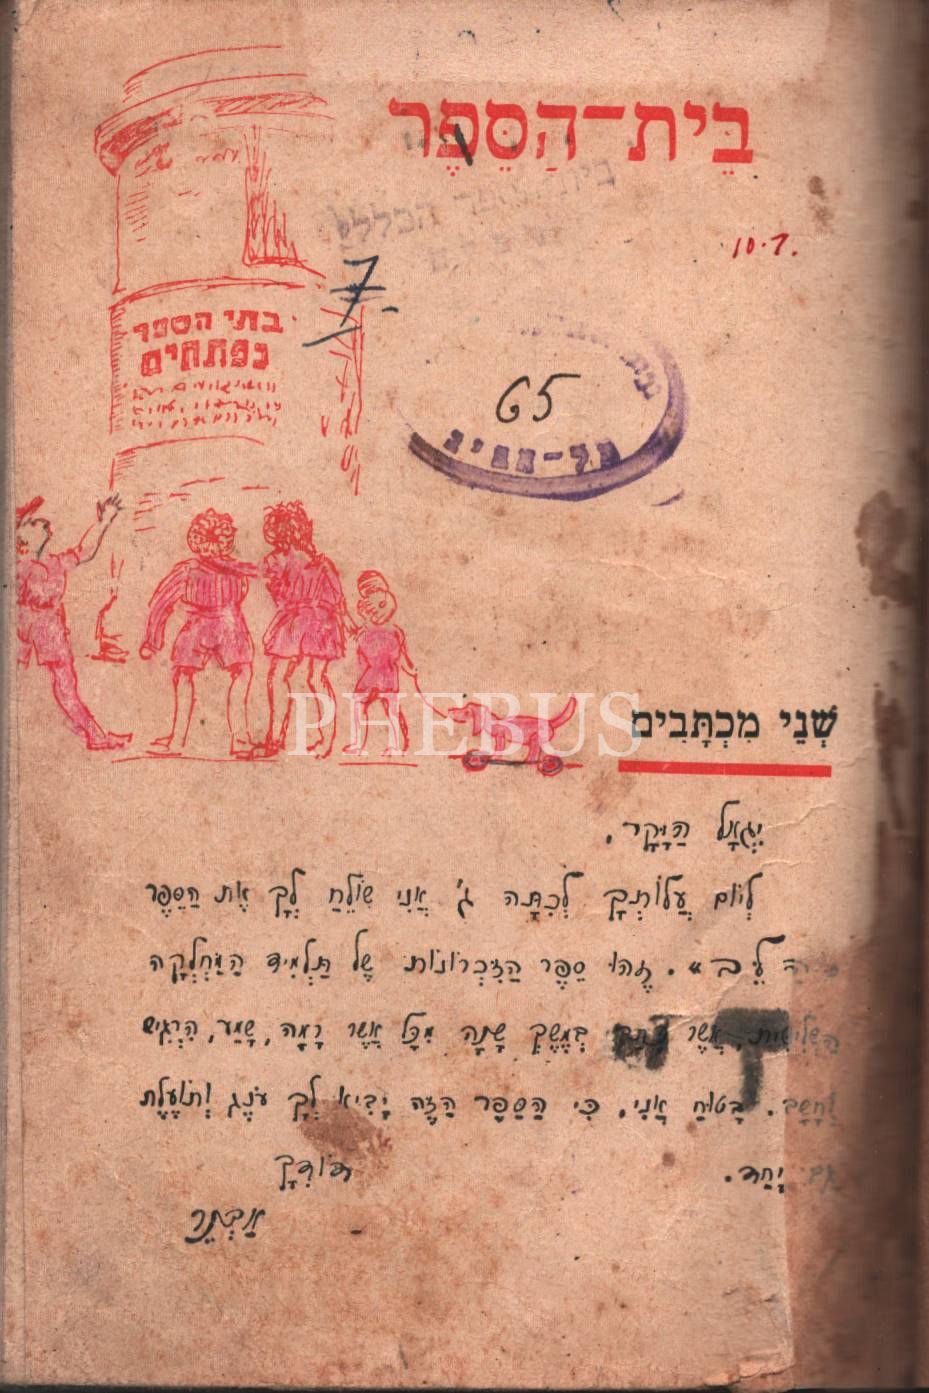 בֵּית־הַסֵּפֶר
10.7.
7.
בתי הספר
נפתחים
65
תל-אביב
PHEBUS
שְׁנֵי מִכְתָּבִים
יִגְאָל הַיָּקָר,
לְיוֹם עֲלוֹתְךָ לְכִתָּה ג' אֲנִי שׁוֹלֵחַ לְךָ אֶת הַסֵּפֶר
לֵב". זֶהוּ סֵפֶר הַזִּכְרוֹנוֹת שֶׁל תַּלְמִיד הַמַּחְלָקָה
הַשְּׁלִישִׁית אֲשֶׁר בְּמֶשֶׁךְ שָׁנָה מִכָּל אֲשֶׁר רָאָה, שָׁמַע, הִרְגִּישׁ
וְחָשַׁב. בָּטוּחַ אֲנִי, כִּי הַסֵּפֶר הַזֶּה יָבִיא לְךָ עֹנֶג וְתוֹעֶלֶת
גַּם יַחַד.
דּוֹדְךָ